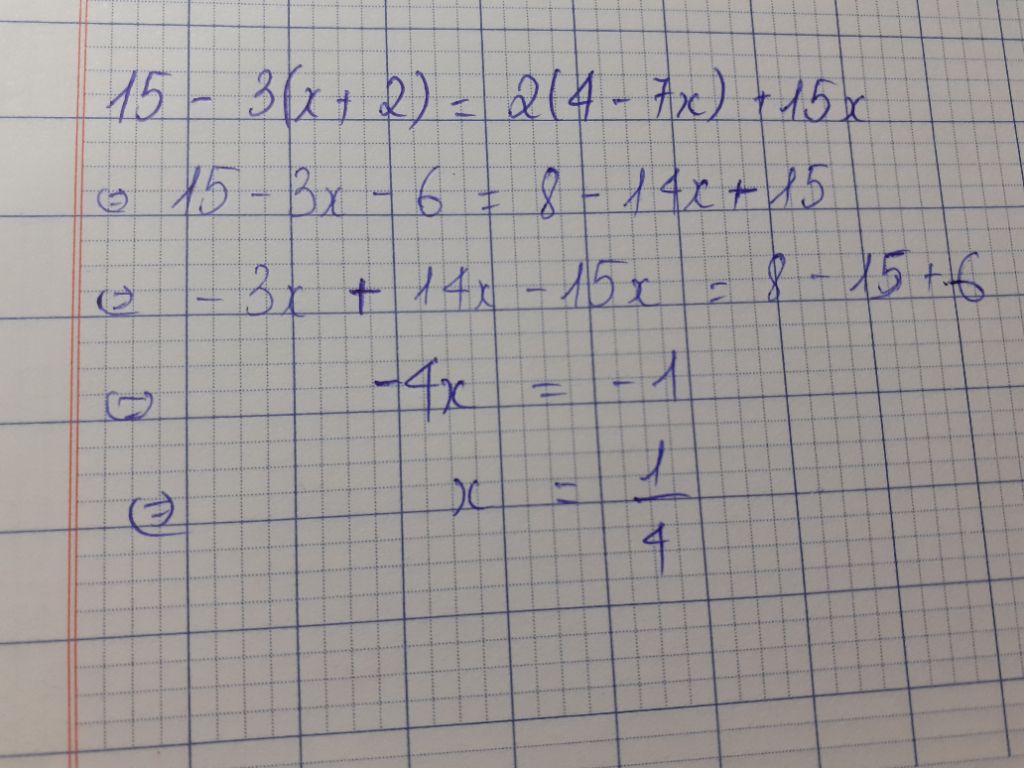 15 - 3(x + 2) = 2(4 - 7x) + 15x
⇔ 15 - 3x - 6 = 8 - 14x + 15
⇔ - 3x + 14x - 15x = 8 - 15 + 6
⇔ -4x = -1
⇔ x = \frac{1}{4}